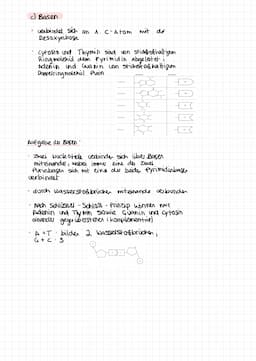 c) Basen
· verbindet sich an 1. C-Atom mit der
Desoxyribose
· Cytosin und Thymin sind von stickstoffhaltigem
Ringmolekül dem Pyrimidin abgeleitet;
Adenin und Guanin von stickstoffhaltigem
Doppelringmolekül Purin
Aufgabe der Basen:
· zwei Nucleotide verbinden sich über Basen
miteinander, wobei immer eine der zwei
Purinbasen sich mit eine der beide Pyrimidinbase
verbindet
· durch Wasserstoffbrücken miteinander verbunden
· Nach Schlüssel-Schloss-Prinzip können nur
Adenin und Thymin sowie Guanin und Cytosin
einander gegenüberstehen (komplementär)
· A + T · bilden 2 Wasserstoffbrücken,
G + C · 3